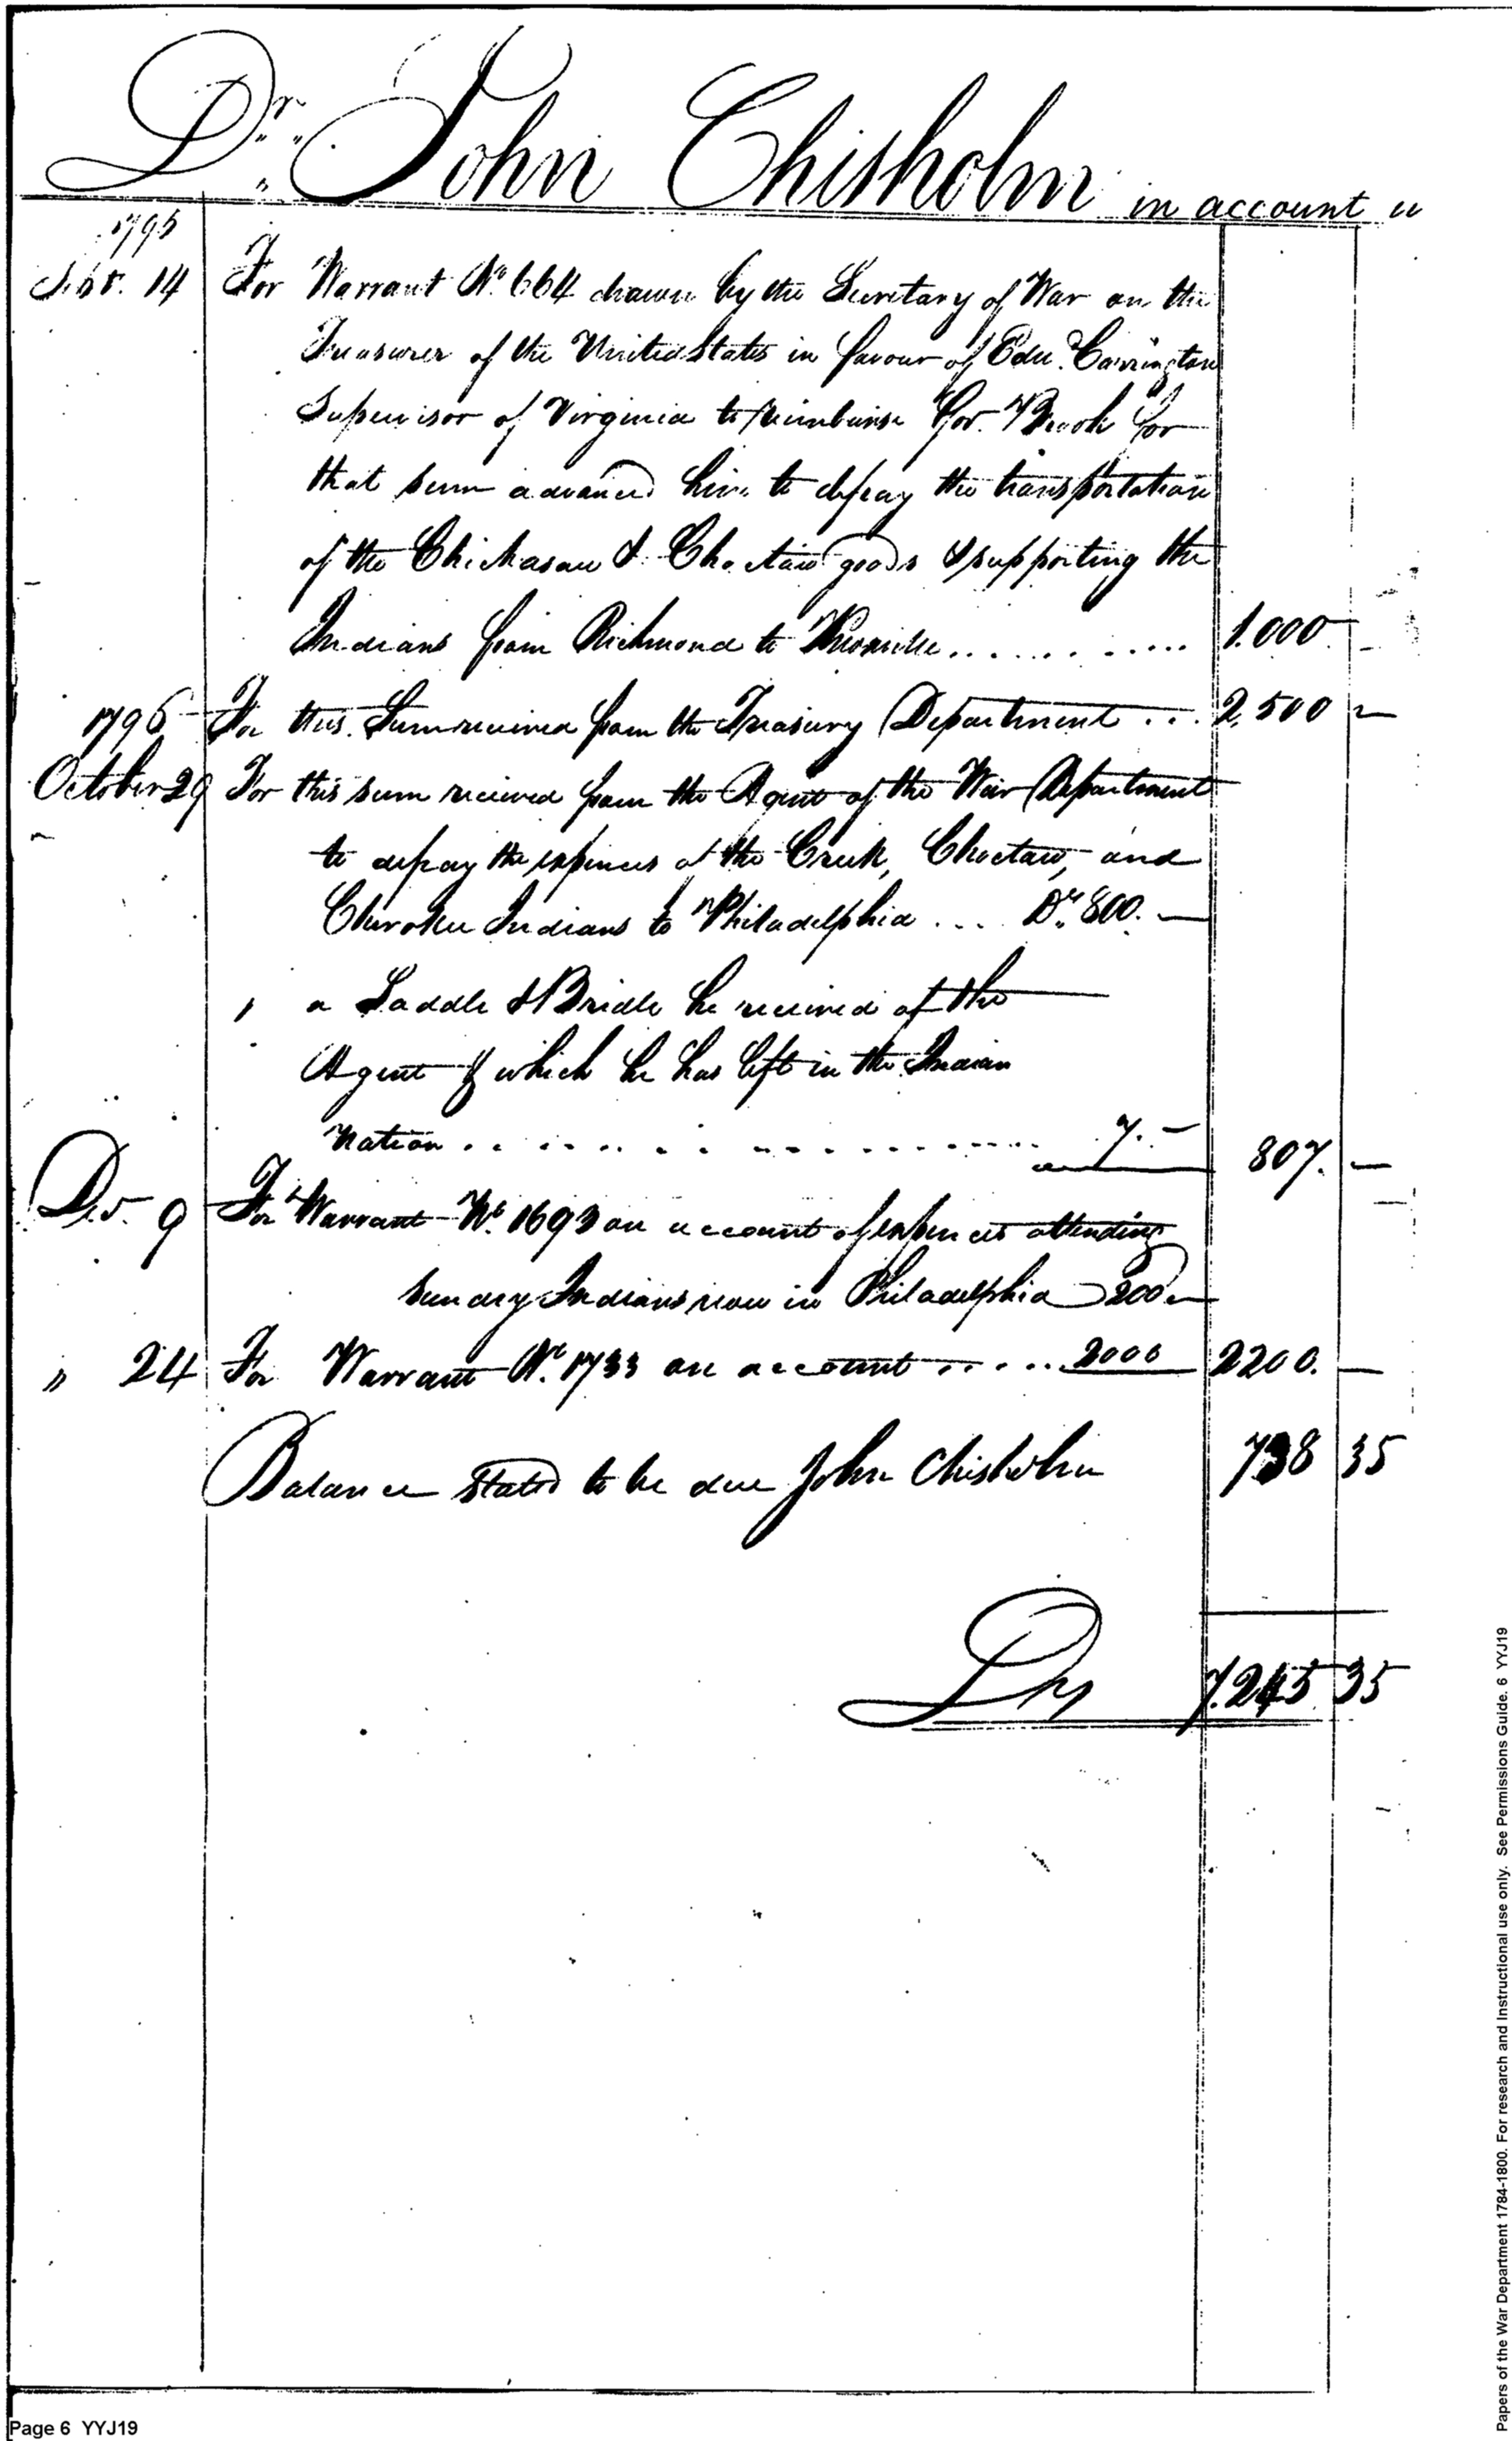 Dr. John Chisholm in account
1795
Sept. 14 For Warrant No. 664 drawn by the Secretary of War on the
Treasurer of the United States in favour of Edw. Carrington
Supervisor of Virginia to reimburse Gov. Brook for
that sum advanced him to defray the transportation
of the Chickasaw & Choctaw goods & supporting the
Indians from Richmond to Knoxville . . . . . . . . . . . 1.000
1796 For this Sum received from the Treasury Department . . . 2,500 —
October 29 For this sum received from the Agent of the War Department
to defray the expences of the Creek, Choctaw, and
Cherokee Indians to Philadelphia . . . Drs. 800. —
" a Saddle & Bridle he received of the
Agent & which he has left in the Indian
Nation . . . . . . . . . . . . . . . . 7. — 807. —
Dec. 9 For Warrant No. 1693 on account of expences attending
sundry Indians now in Philadelphia 200 —
" 24 For Warrant No. 1733 on account . . . . . 2000 2200. —
Balance stated to be due John Chisholm 738 35
Drs 7.245 35
Page 6 YYJ19
Papers of the War Department 1784-1800. For research and Instructional use only. See Permissions Guide. 6 YYJ19